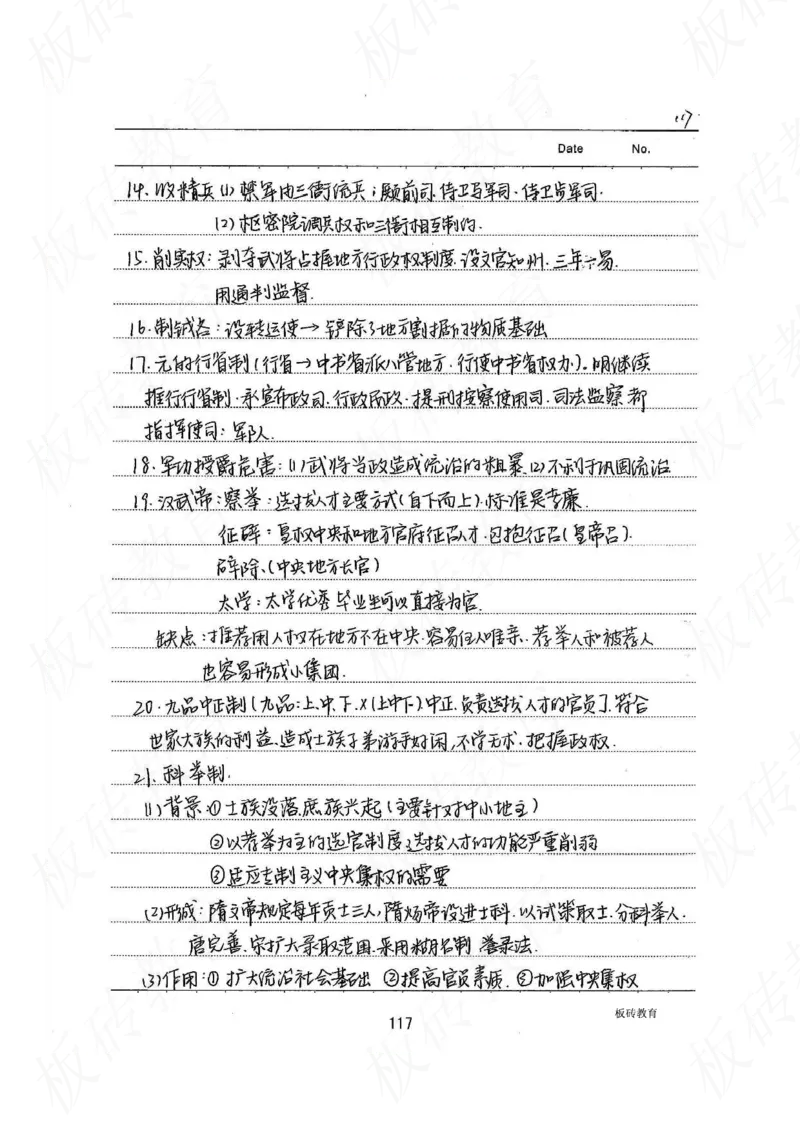 117
Date No.
14.收精兵(1)禁军由三衙统兵；殿前司.侍卫马军司.侍卫步军司.
(2)枢密院调兵权和三衙相互制约.
15.削实权：剥夺武将占据地方行政权制度.设文官知州.三年一易.
用通判监督.
16.制钱谷：设转运使→铲除了地方割据的物质基础
17.元的行省制(行省→中书省派人管地方.行使中书省权力)。明继续
推行行省制.承宣布政司.行政民政.提刑按察使司.司法监察 都
指挥使司：军队.
18.军功授爵危害：(1)武将当政造成统治的粗暴.(2)不利于巩固统治
19.汉武帝：察举：选拔人才主要方式(自下而上).标准是孝廉.
征辟：皇权中央和地方官府征召人才.包括征召(皇帝召).
辟除.(中央地方长官)
太学：太学优秀毕业生可以直接为官.
缺点：推荐用人权在地方不在中央.容易任人唯亲.荐举人和被荐人
也容易形成小集团.
20.九品中正制[九品：上.中.下.X(上中下).中正.负责选拔人才的官员].符合
世家大族的利益.造成士族子弟游手好闲,不学无术.把握政权.
21.科举制.
(1)背景:①士族没落.庶族兴起(主要针对中小地主)
②以荐举为主的选官制度选拔人才的功能严重削弱
③适应专制主义中央集权的需要
(2)形成：隋文帝规定每年贡士三人,隋炀帝设进士科.以试策取士.分科举人.
唐完善.宋扩大录取范围.采用糊名制 誊录法.
(3)作用：①扩大统治社会基础 ②提高官员素质.③加强中央集权
板砖教育
117